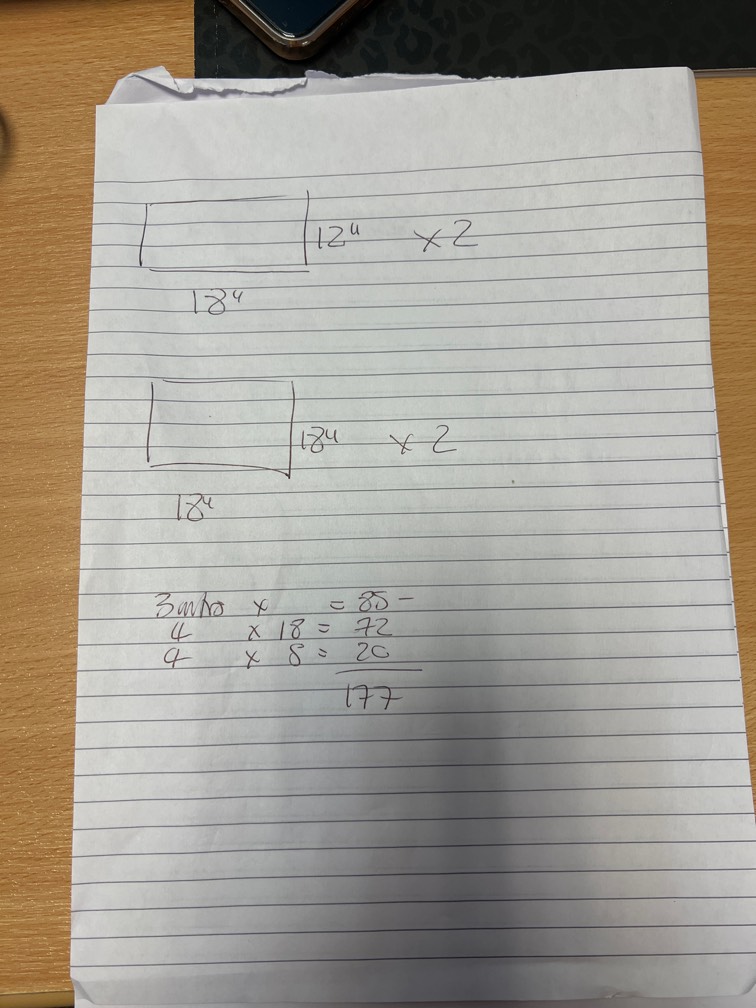 12" x 2
18"
18" x 2
18"
3 mtrs x = 85 -
4 x 18 = 72
4 x 8 = 20
177